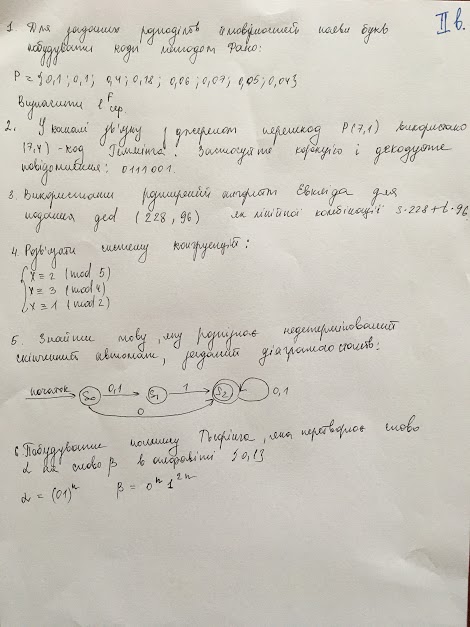 II в.
1 Для заданих розподілів ймовірностей появи букв
побудувати коди методом Фано:
P = {0,1; 0,1; 0,4; 0,18; 0,06; 0,07; 0,05; 0,04}
Визначити l^F сер
2. У каналі зв'язку з джерелом перешкод P(7,1) використано
(7,4) - код Геммінга. Застосуйте корекцію і декодуйте
повідомлення: 0111001.
3. Використати розширений алгоритм Евкліда для
подання gcd (228, 96) як лінійної комбінації s·228+t·96
4. Розв'язати систему конгруенцій:
x ≡ 2 (mod 5)
x ≡ 3 (mod 4)
x ≡ 1 (mod 2)
5. Знайти мову, яку розпізнає недетермінований
скінченний автомат, заданий діаграмою станів:
початок S0 0,1 S1 1 S2 0,1
0
6 Побудувати машину Тьюрінга, яка перетворює слово
α на слово β в алфавіті {0,1}
α = (01)ⁿ β = 0ⁿ 1²ⁿ